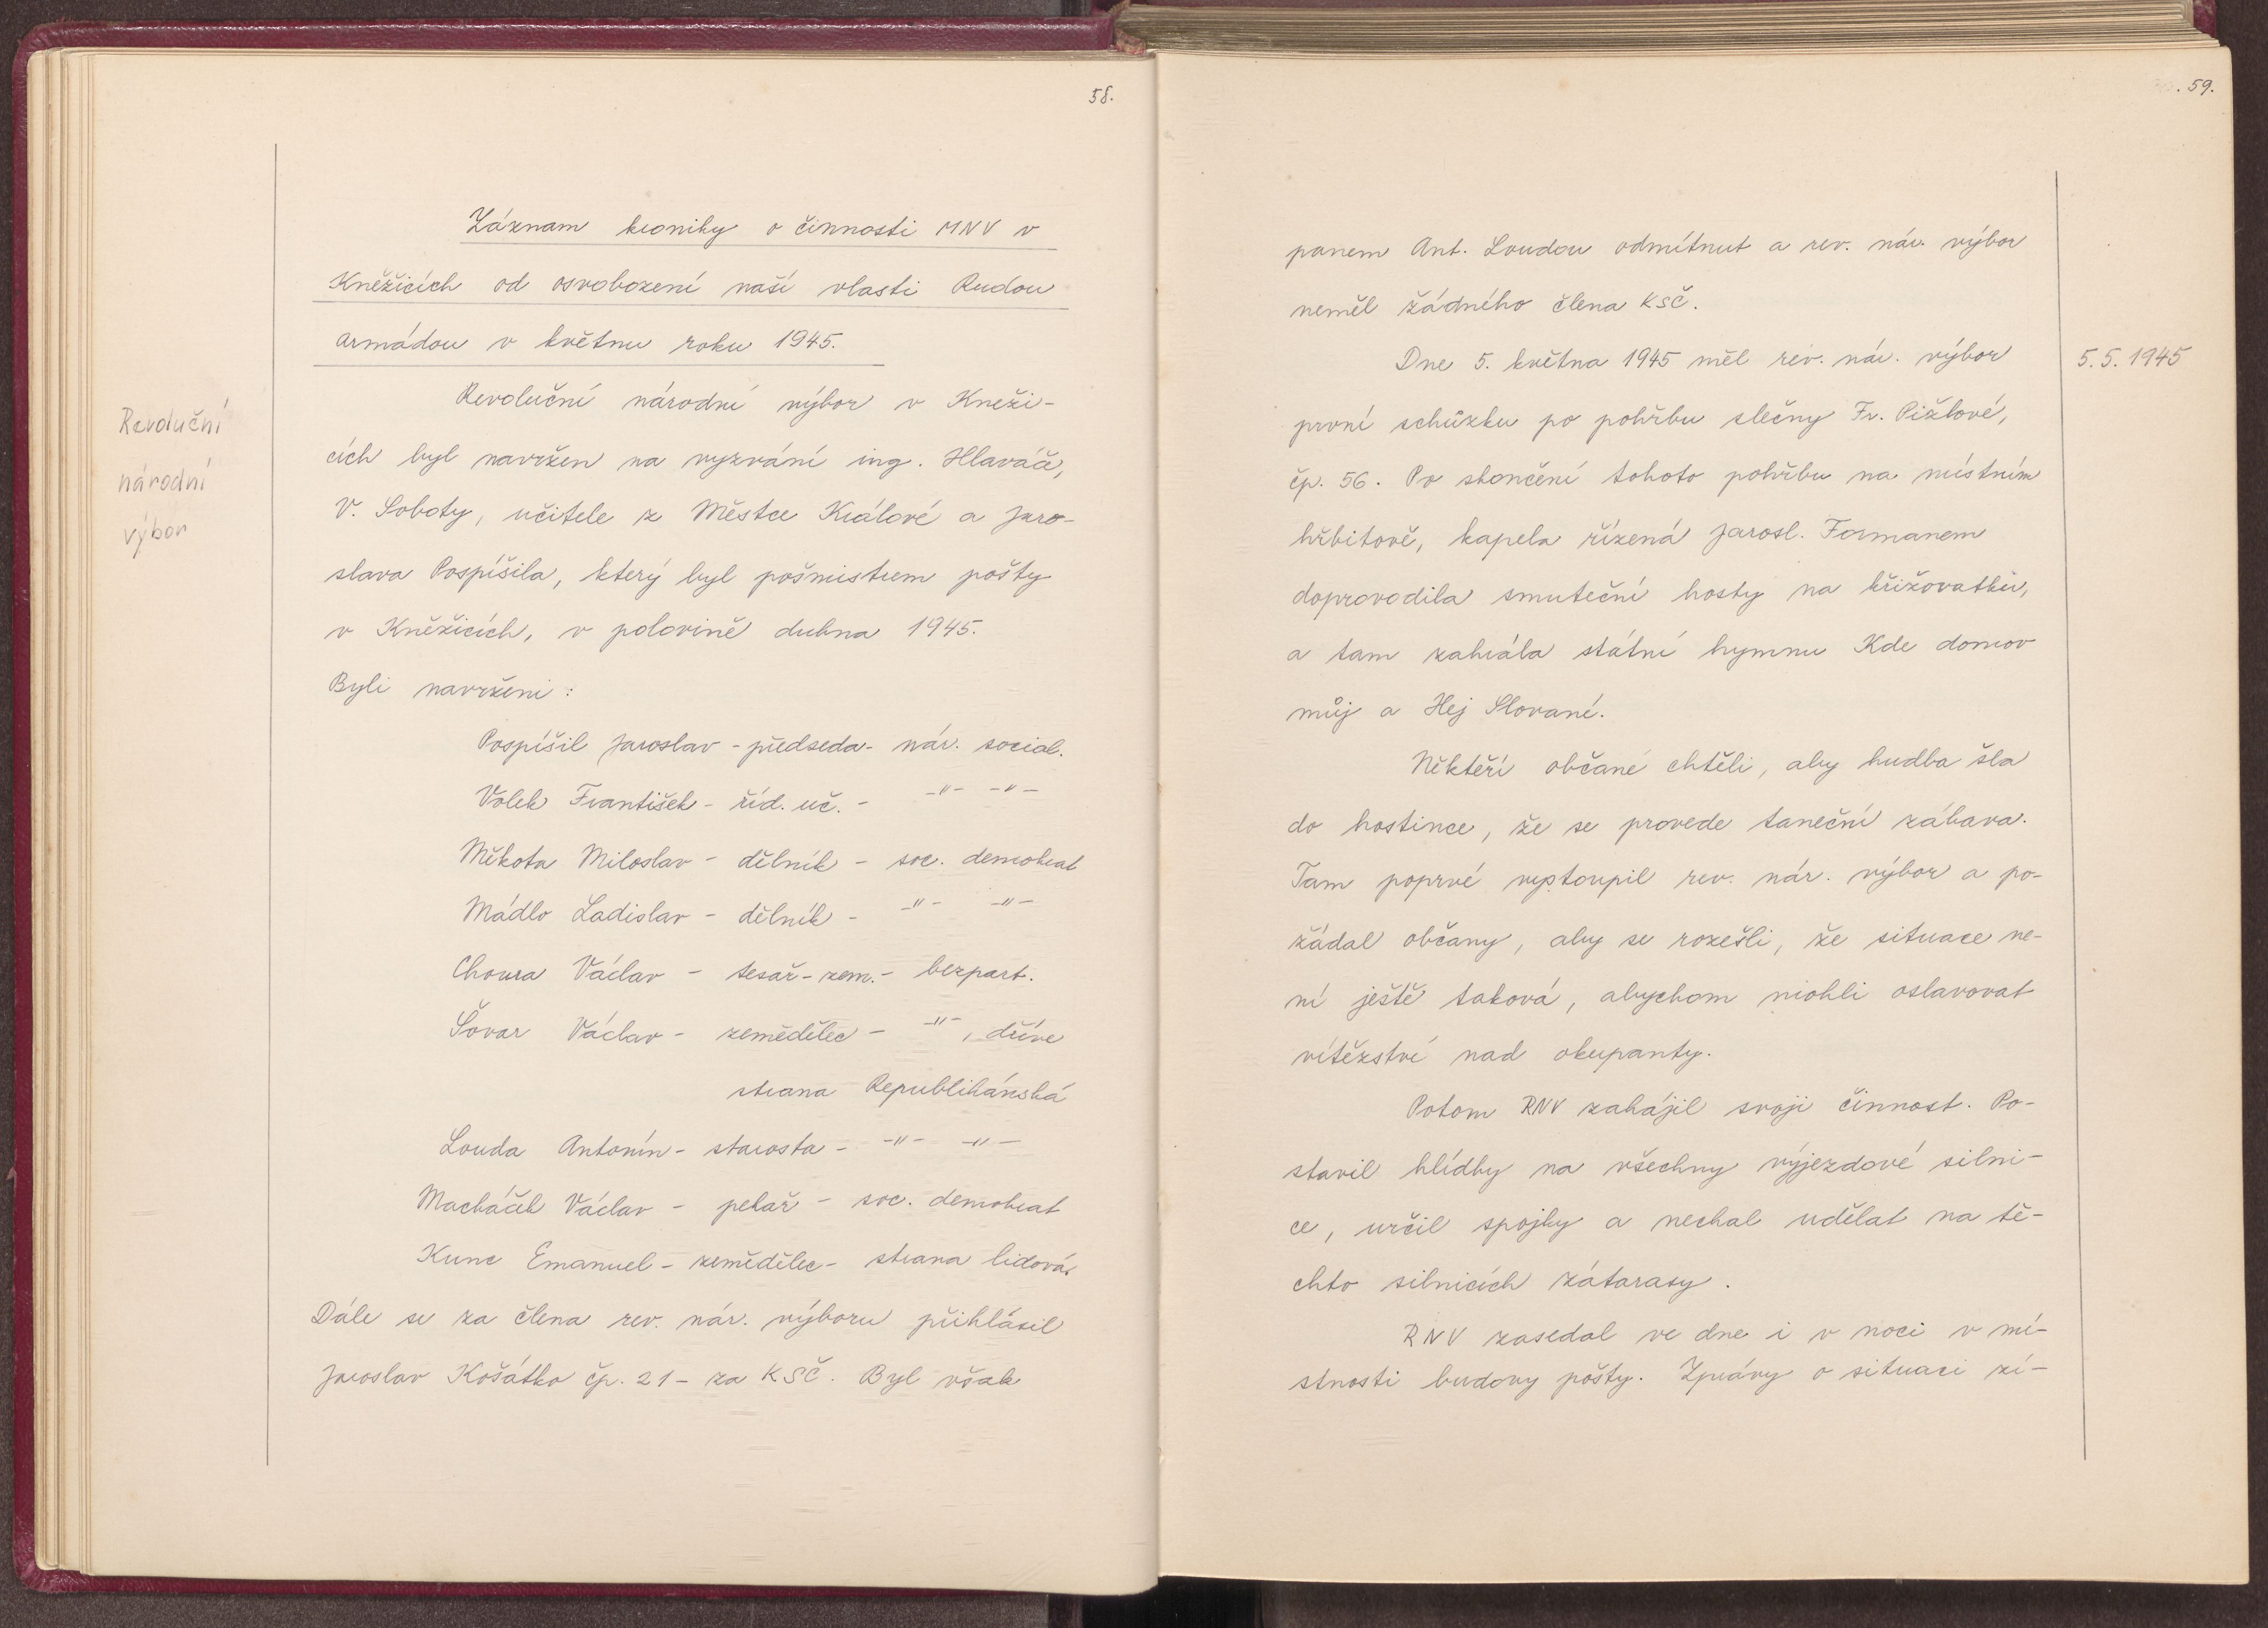 58.
Záznam kroniky o činnosti MNV v
Kněžicích od osvobození naší vlasti Rudou
armádou v květnu roku 1945.
Revoluční
národní
výbor
Revoluční národní výbor v Kneži-
cích byl navržen na vyzvání ing. Hlaváče,
V. Soboty, učitele z Městce Králové a Jaro-
slava Pospíšila, který byl pošmistrem pošty
v Kněžicích, v polovině dubna 1945.
Byli navrženi:
Pospíšil Jaroslav - předseda - nár. social.
Volek František - říd. uč. - -"- -"-
Měkota Miloslav - dělník - soc. demokrat
Mádlo Ladislav - dělník - -"- -"-
Choura Václav - tesař - zem. - bezpart.
Šovar Václav - zemědělec - -"-, dříve
strana Republikánská
Louda Antonín - starosta - -"- -"-
Macháček Václav - pekař - soc. demokrat
Kunc Emanuel - zemědělec - strana lidová.
Dále se za člena rev. nár. výboru přihlásil
Jaroslav Košátko čp. 21 - za KSČ. Byl však
59.
panem Ant. Loudou odmítnut a rev. nár. výbor
neměl žádného člena KSČ.
Dne 5. května 1945 měl rev. nár. výbor
5.5. 1945
první schůzku po pohřbu slečny Fr. Pižlové,
čp. 56. Po skončení tohoto pohřbu na místním
hřbitově, kapela řízená Jarosl. Formanem
doprovodila smuteční hosty na křižovatku,
a tam zahrála státní hymnu Kde domov
můj a Hej Slované.
Někteří občané chtěli, aby hudba šla
do hostince, že se provede taneční zábava.
Tam poprvé vystoupil rev. nár. výbor a po-
žádal občany, aby se rozešli, že situace ne-
ní ještě taková, abychom mohli oslavovat
vítězství nad okupanty.
Potom RNV zahájil svoji činnost. Po-
stavil hlídky na všechny výjezdové silni-
ce, určil spojky a nechal udělat na tě-
chto silnicích zátarasy.
RNV zasedal ve dne i v noci v mí-
stnosti budovy pošty. Zprávy o situaci zí-